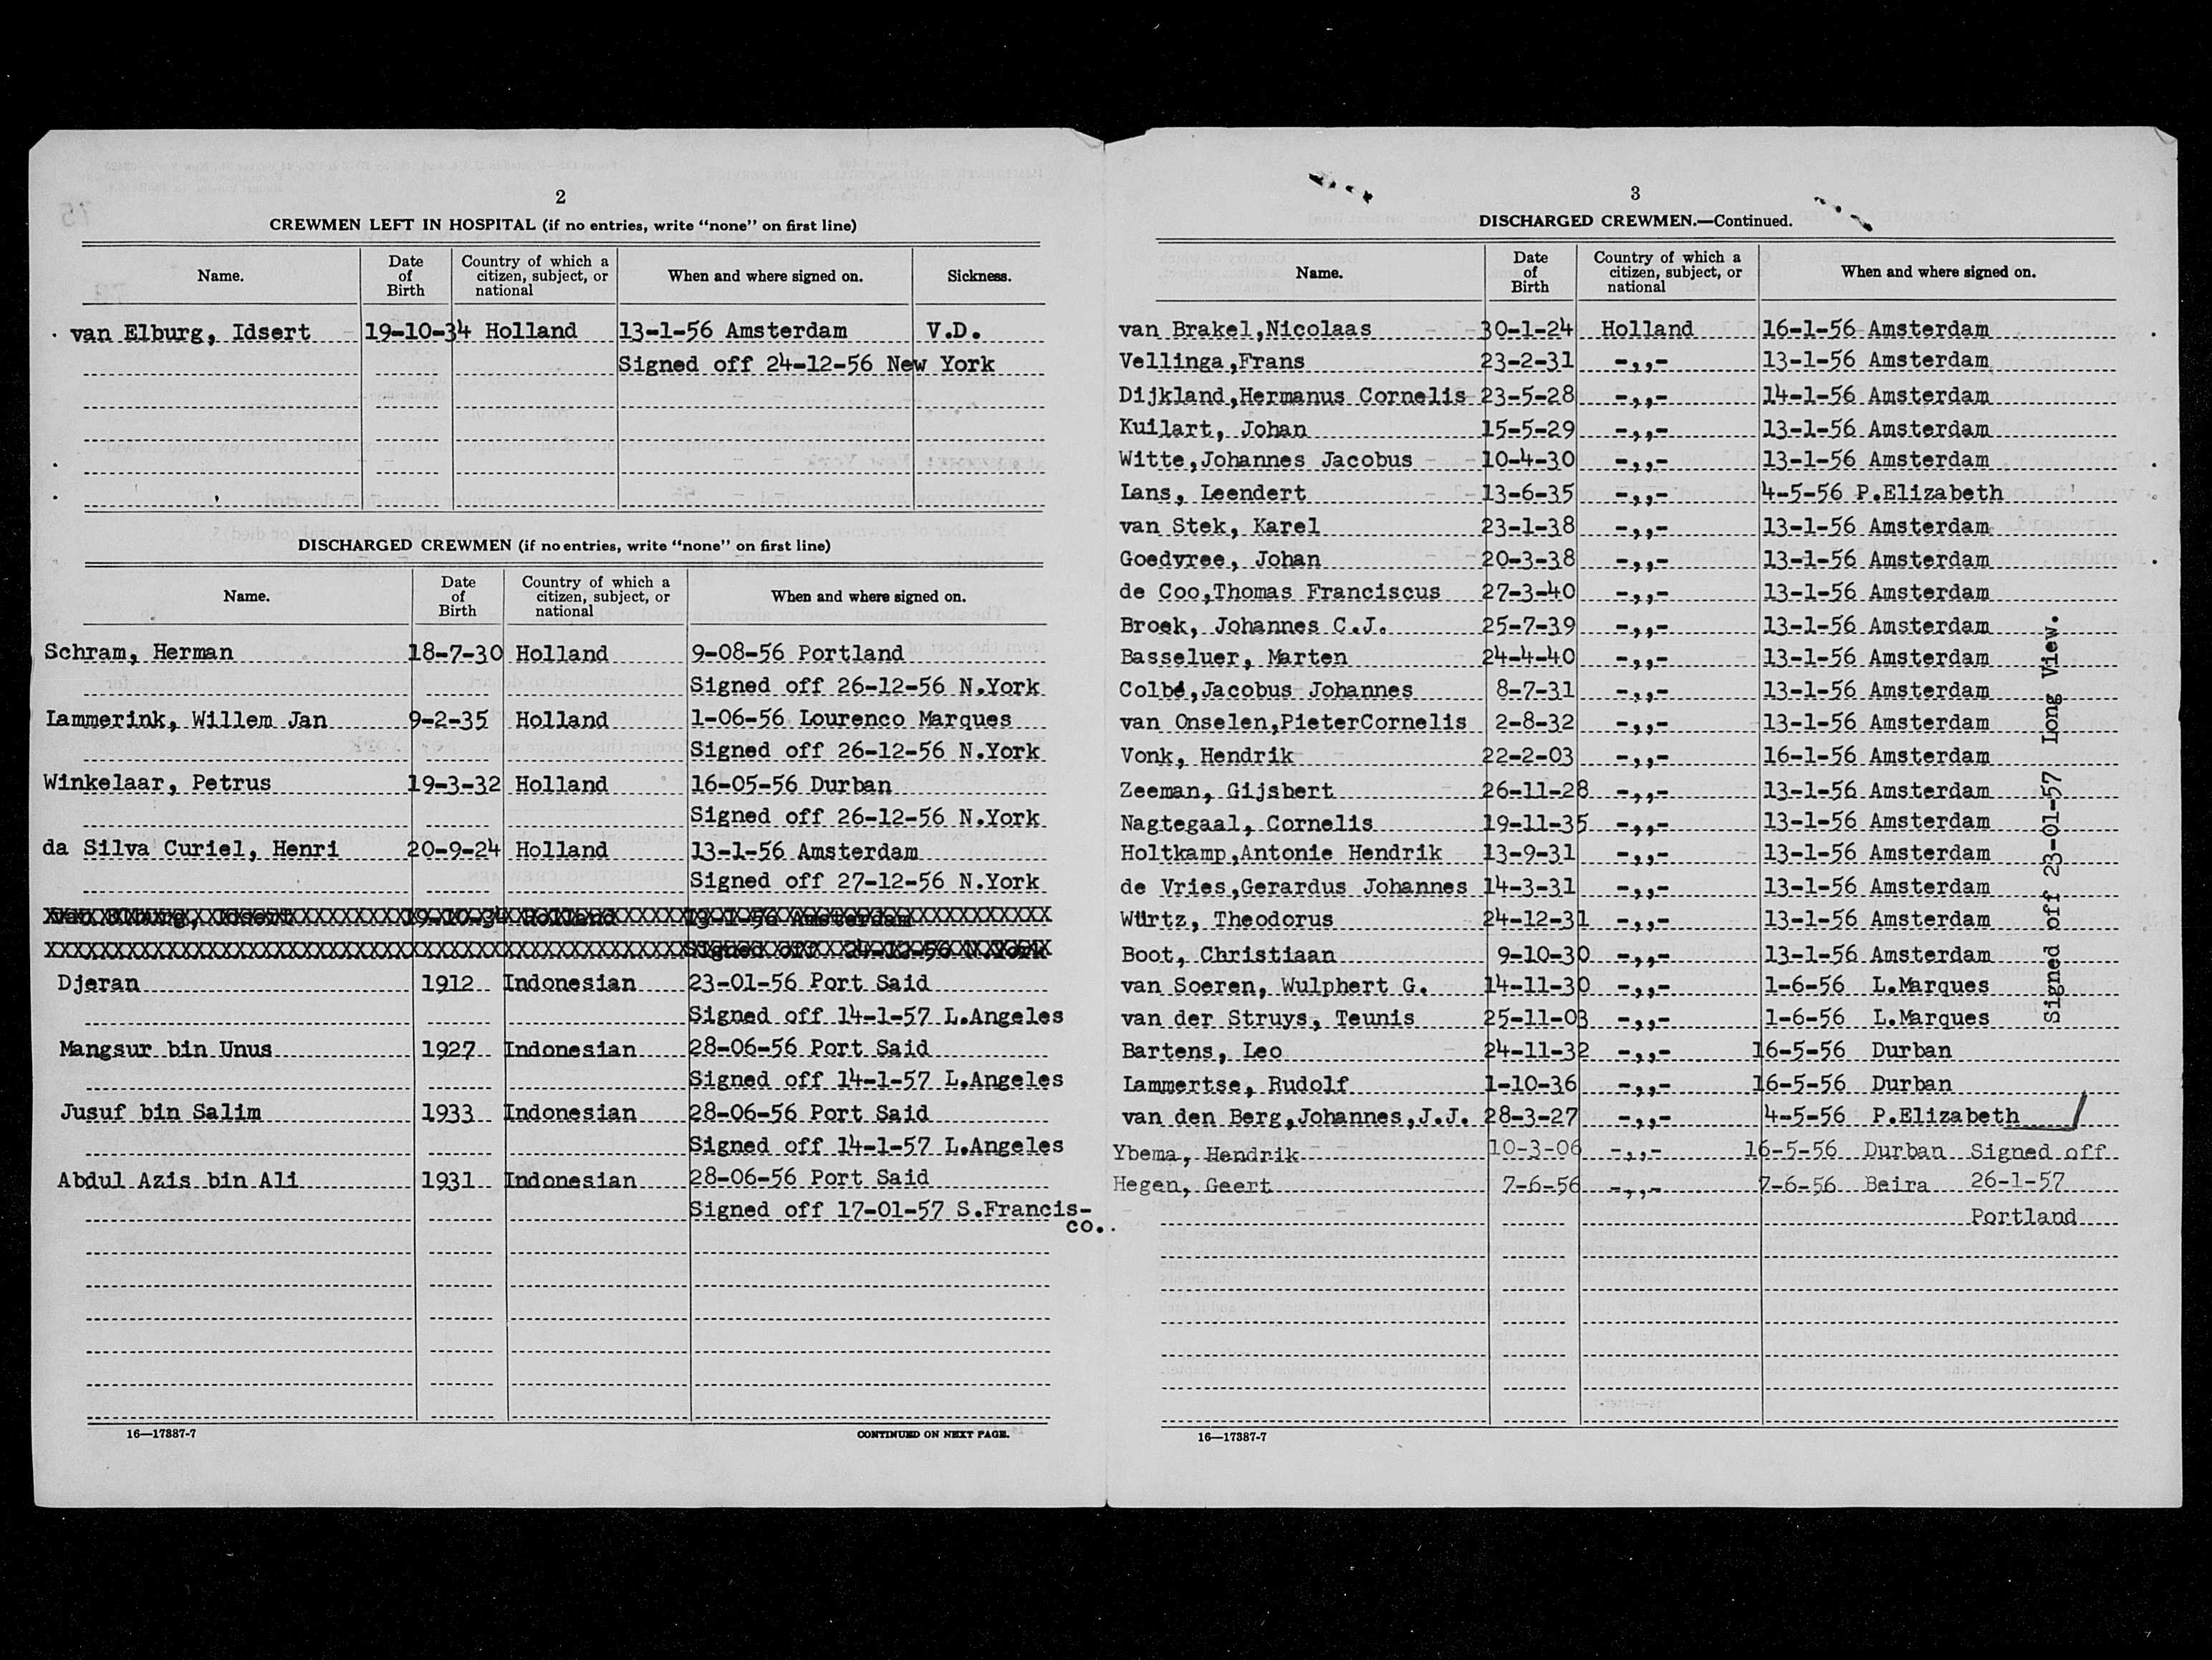 2
CREWMEN LEFT IN HOSPITAL (if no entries, write "none" on first line)
Name. Date of Birth Country of which a citizen, subject, or national When and where signed on. Sickness.
van Elburg, Idsert 19-10-34 Holland 13-1-56 Amsterdam V.D.
Signed off 24-12-56 New York
DISCHARGED CREWMEN (if no entries, write "none" on first line)
Name. Date of Birth Country of which a citizen, subject, or national When and where signed on.
Schram, Herman 18-7-30 Holland 9-08-56 Portland
Signed off 26-12-56 N.York
Lammerink, Willem Jan 9-2-35 Holland 1-06-56 Lourenco Marques
Signed off 26-12-56 N.York
Winkelaar, Petrus 19-3-32 Holland 16-05-56 Durban
Signed off 26-12-56 N.York
da Silva Curiel, Henri 20-9-24 Holland 13-1-56 Amsterdam
Signed off 27-12-56 N.York
van Elburg, Idsert 19-10-34 Holland 13-1-56 Amsterdam
Signed off 24-12-56 N.York
Djeran 1912 Indonesian 23-01-56 Port Said
Signed off 14-1-57 L.Angeles
Mangsur bin Unus 1927 Indonesian 28-06-56 Port Said
Signed off 14-1-57 L.Angeles
Jusuf bin Salim 1933 Indonesian 28-06-56 Port Said
Signed off 14-1-57 L.Angeles
Abdul Azis bin Ali 1931 Indonesian 28-06-56 Port Said
Signed off 17-01-57 S.Francis-
co.
16—17387-7 CONTINUED ON NEXT PAGE.
3
DISCHARGED CREWMEN.—Continued.
Name. Date of Birth Country of which a citizen, subject, or national When and where signed on.
van Brakel,Nicolaas 30-1-24 Holland 16-1-56 Amsterdam
Vellinga,Frans 23-2-31 -,,- 13-1-56 Amsterdam
Dijkland,Hermanus Cornelis 23-5-28 -,,- 14-1-56 Amsterdam
Kuilart, Johan 15-5-29 -,,- 13-1-56 Amsterdam
Witte,Johannes Jacobus 10-4-30 -,,- 13-1-56 Amsterdam
Lans, Leendert 13-6-35 -,,- 4-5-56 P.Elizabeth
van Stek, Karel 23-1-38 -,,- 13-1-56 Amsterdam
Goedvree, Johan 20-3-38 -,,- 13-1-56 Amsterdam
de Coo,Thomas Franciscus 27-3-40 -,,- 13-1-56 Amsterdam
Broek, Johannes C.J. 25-7-39 -,,- 13-1-56 Amsterdam
Basseluer, Marten 24-4-40 -,,- 13-1-56 Amsterdam
Colbé,Jacobus Johannes 8-7-31 -,,- 13-1-56 Amsterdam
van Onselen,PieterCornelis 2-8-32 -,,- 13-1-56 Amsterdam
Vonk, Hendrik 22-2-03 -,,- 16-1-56 Amsterdam
Zeeman, Gijsbert 26-11-28 -,,- 13-1-56 Amsterdam
Nagtegaal, Cornelis 19-11-35 -,,- 13-1-56 Amsterdam
Holtkamp,Antonie Hendrik 13-9-31 -,,- 13-1-56 Amsterdam
de Vries,Gerardus Johannes 14-3-31 -,,- 13-1-56 Amsterdam
Würtz, Theodorus 24-12-31 -,,- 13-1-56 Amsterdam
Boot, Christiaan 9-10-30 -,,- 13-1-56 Amsterdam
van Soeren, Wulphert G. 14-11-30 -,,- 1-6-56 L.Marques
van der Struys, Teunis 25-11-03 -,,- 1-6-56 L.Marques
Bartens, Leo 24-11-32 -,,- 16-5-56 Durban
Lammertse, Rudolf 1-10-36 -,,- 16-5-56 Durban
van den Berg,Johannes,J.J. 28-3-27 -,,- 4-5-56 P.Elizabeth
Signed off 23-01-57 Long View.
Ybema, Hendrik 10-3-06 -,,- 16-5-56 Durban Signed off
Hegen, Geert 7-6-56 -,,- 7-6-56 Beira 26-1-57
Portland
16—17387-7